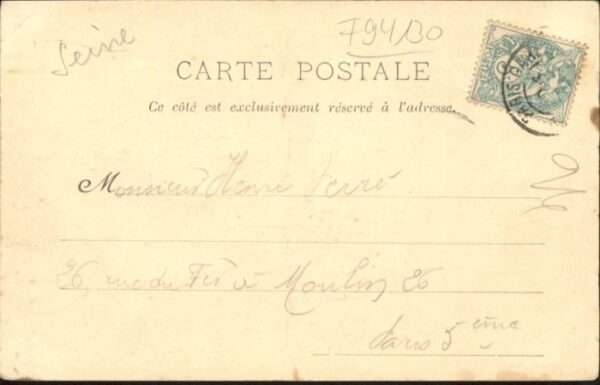 Seine
F94130
CARTE POSTALE
Ce côté est exclusivement réservé à l'adresse.
Monsieur Henri Verré
26, rue du Fer à Moulin 26
Paris 5ème
PARIS